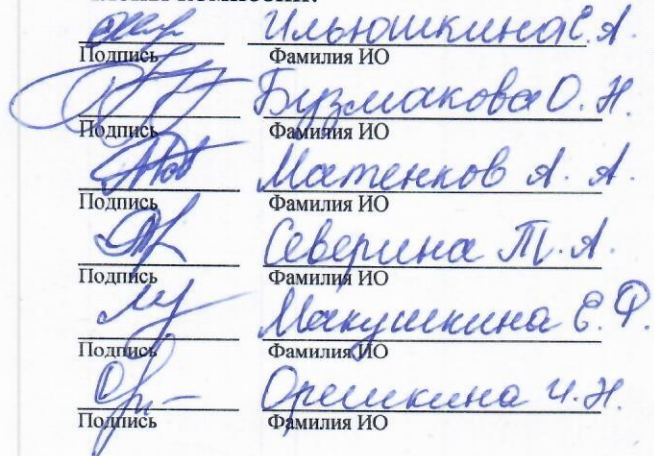 Ильюшкина С.А.
Подпись Фамилия ИО
Бузмакова О. Н.
Подпись Фамилия ИО
Матенков А. А.
Подпись Фамилия ИО
Северина Т. А.
Подпись Фамилия ИО
Макушкина Е. Ф.
Подпись Фамилия ИО
Орешкина И. Н.
Подпись Фамилия ИО